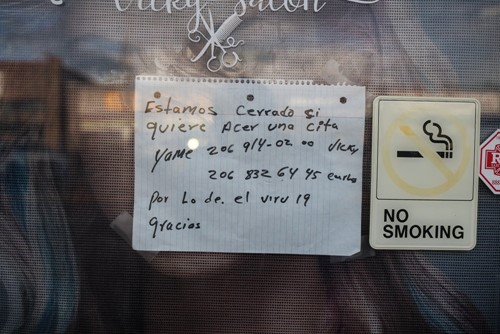 Vicky Salon
Estamos Cerrado si
quiere Acer una cita
Yame 206 914-02 00 Vicky
206 832 64 45
Por Lo de. el viru 19
Gracias
NO
SMOKING